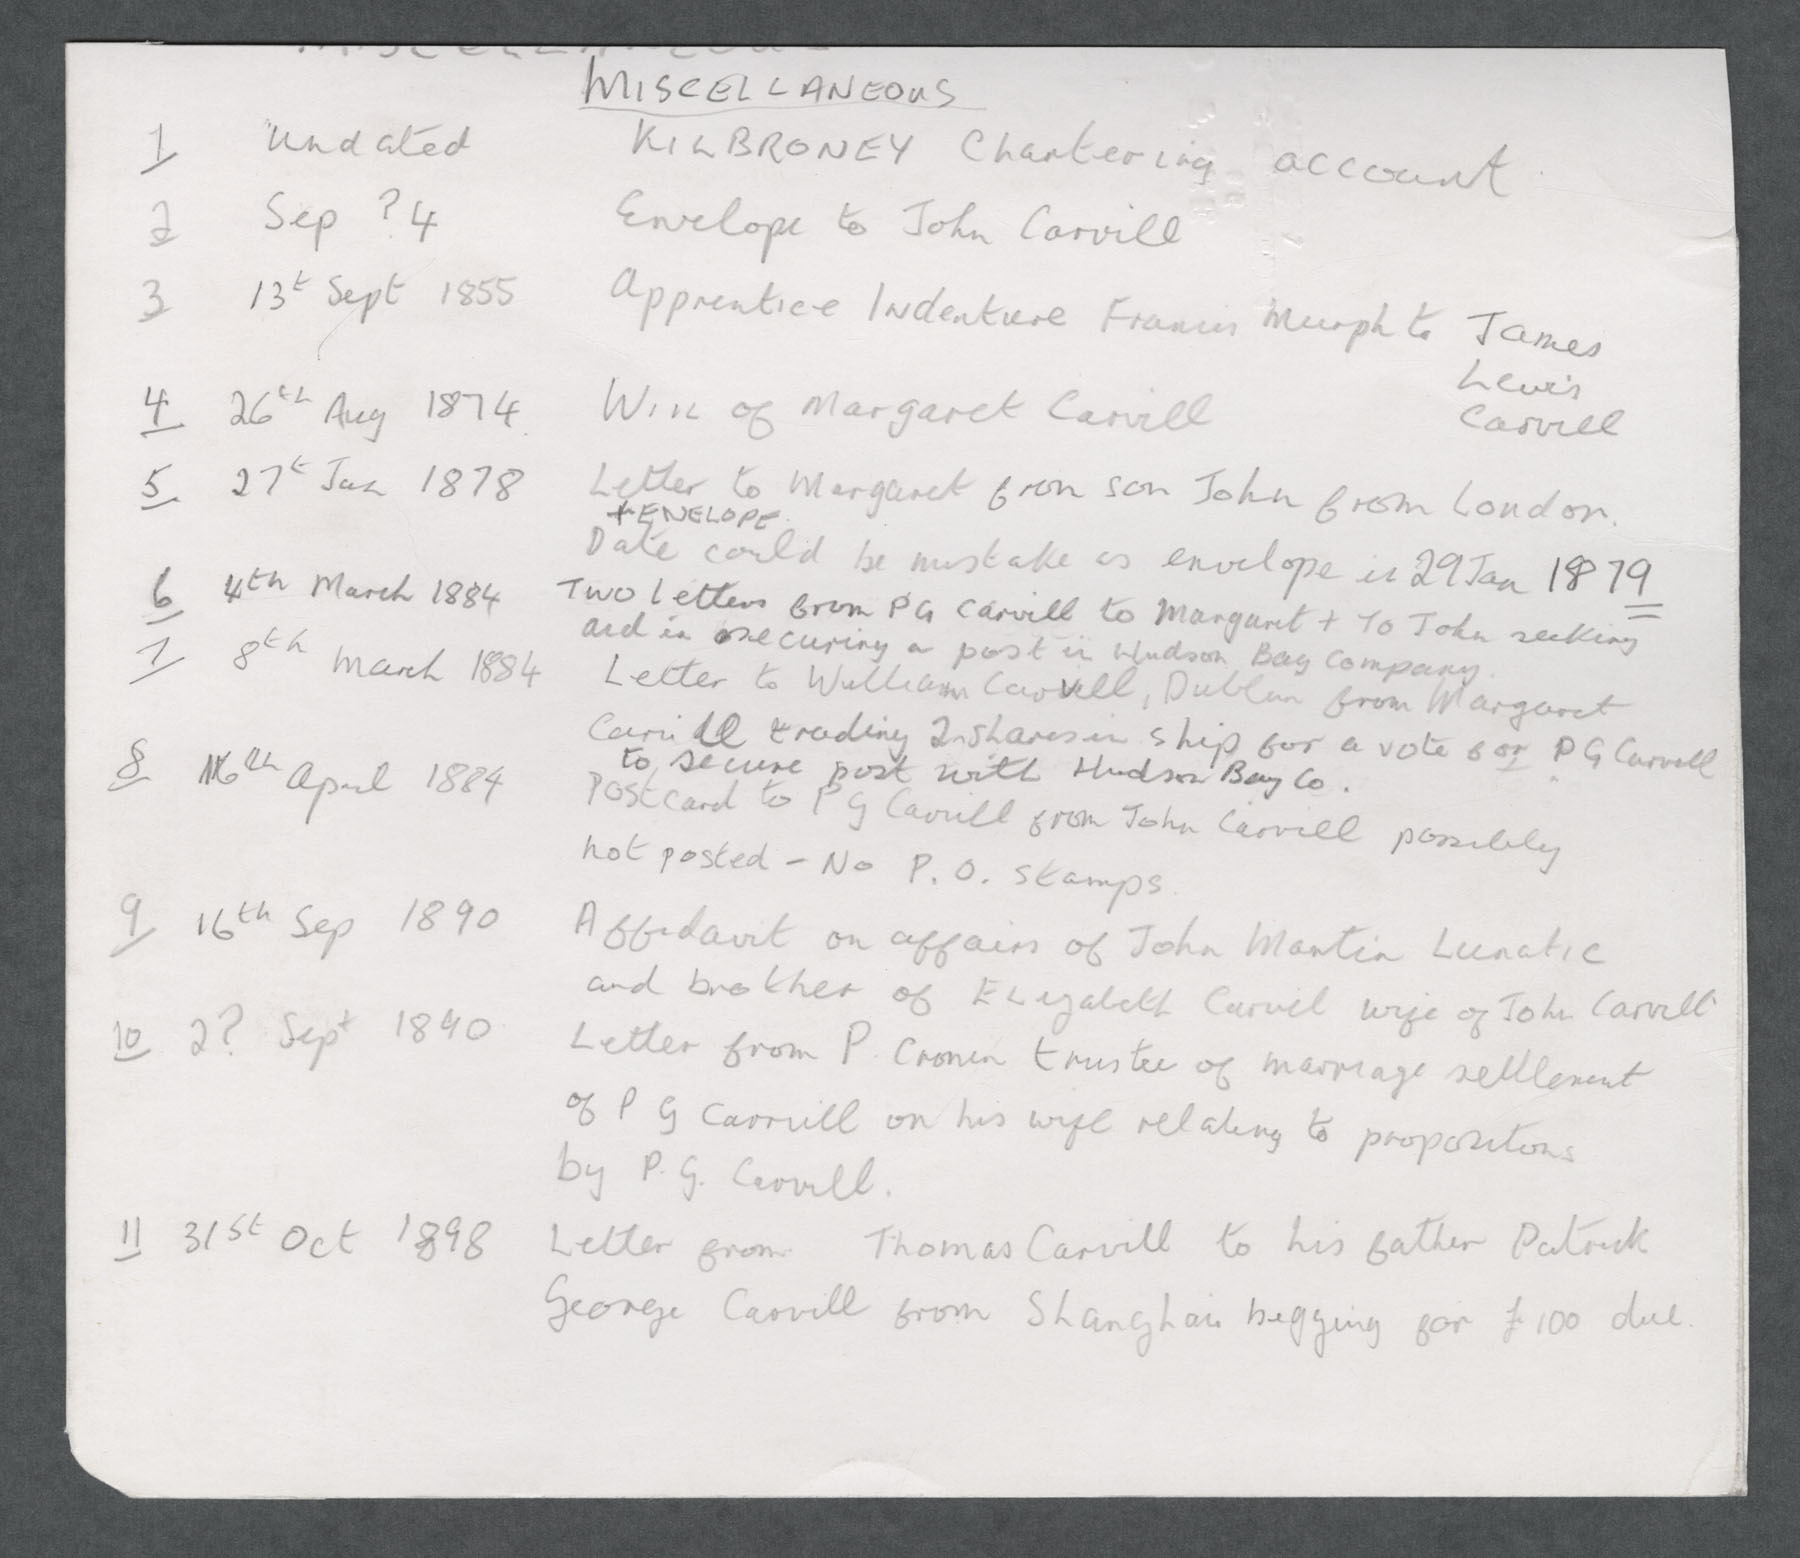 MISCELLANEOUS
1 Undated KILBRONEY Chartering account
2 Sep ?4 Envelope to John Carvill
3 13t Sept 1855 Apprentice Indenture Francis Murph to James
Lewis
Carvill
4 26th Aug 1874 Will of Margaret Carvill
5 27t Jan 1878 Letter to Margaret from son John from London.
+ENELOPE.
Date could be mistake as envelope is 29 Jan 1879
6 4th March 1884 Two letters from PG Carvill to Margaret + To John seeking
aid in securing a post in Hudson Bay Company.
7 8th March 1884 Letter to William Carvill, Dublin from Margaret
Carvill trading 2 shares in ship for a vote for P G Carvill
to secure post with Hudson Bay Co.
8 16th April 1884 Postcard to P G Carvill from John Carvill possibly
not posted - No P.O. Stamps.
9 16th Sep 1890 Affidavit on affairs of John Martin Lunatic
and brother of Elizabeth Carvil wife of John Carvill
10 2? Sept 1890 Letter from P. Cronin trustee of marriage settlement
of P G Carvill on his wife relating to propositions
by P.G. Carvill.
11 31st Oct 1898 Letter from Thomas Carvill to his father Patrick
George Carvill from Shanghai begging for £100 due.